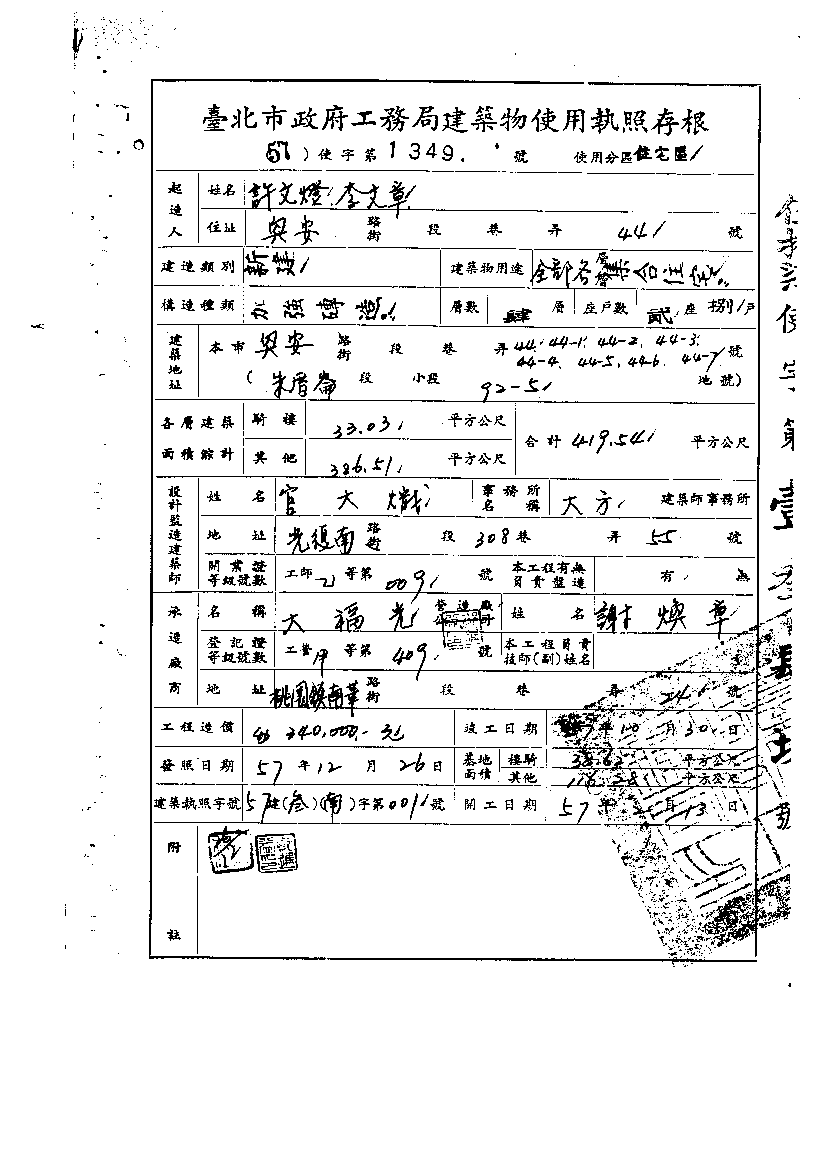 臺北市政府工務局建築物使用執照存根
(57)使字第1349.號 使用分區住宅區
起造人 姓名 許文燈 李文章
住址 興安 路街 段 巷 弄 44 號
建造類別 新建 建築物用途 全部各層層集合住宅
構造種類 加強磚造 層數 肆 層 座戶數 貳 座 捌 戶
建築地址 本市 興安 路街 段 巷 弄 44、44-1、44-2、44-3、44-4、44-5、44-6、44-7 號
(朱厝崙 段 小段 92-5 地號)
各層建築面積綜計 騎樓 33.03 平方公尺 合計 419.54 平方公尺
其他 386.51 平方公尺
設計監造建築師 姓名 官大 事務所名稱 大方 建築師事務所
地址 光復南 路街 段 308 巷 弄 55 號
開業證等級號數 工師 乙 等第 009 號 本工程有無負責監造 有 無
承造廠商 名稱 大福光 營造廠 姓名 謝煥章
登記證等級號數 工營 甲 等第 409 號 本工程負責技師(副)姓名
地址 桃園鎮南華 路街 段 巷 弄 24 號
工程造價 240,000.-元 竣工日期 57年10月30日
發照日期 57年12月26日 基地面積 樓騎 平方公尺
其他 平方公尺
建築執照字號 57建(叁)(南)字第0011號 開工日期 57年 月13日
附註
使字第壹
號